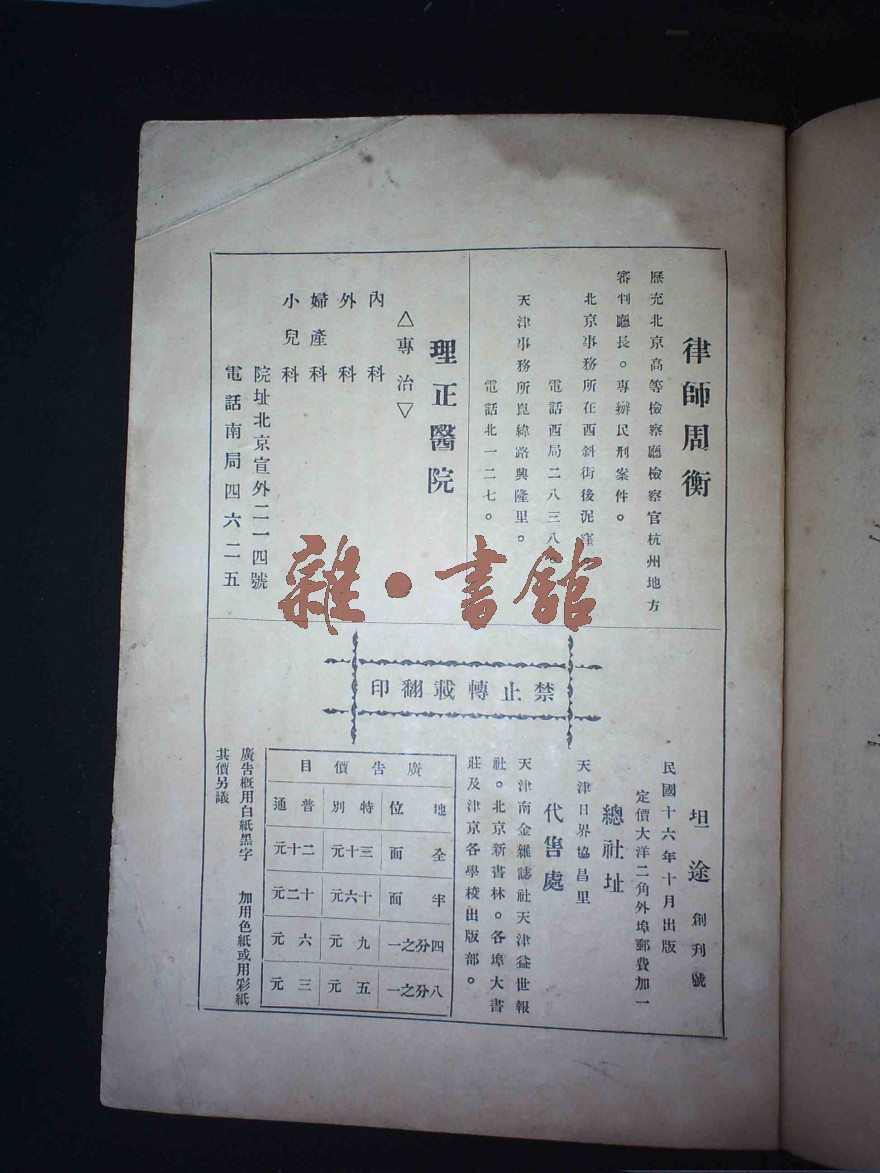 律師周衡
歷充北京高等檢察廳檢察官杭州地方
審判廳長。專辦民刑案件。
北京事務所在西斜街後泥窪
電話西局二八三八
天津事務所崑緯路興隆里。
電話北一二七。
理正醫院
△專治▽
內科
外科
婦產科
小兒科
院址北京宣外二一四號
電話南局四六二五
雜·書館
禁止轉載翻印
坦途 創刊號
民國十六年十月出版
定價大洋二角外埠郵費加一
總社址
天津日界協昌里
代售處
天津南金雜誌社天津益世報
社。北京新書林。各埠大書
莊及津京各學校出版部。
廣告價目
地位 特別 普通
全面 三十元 二十元
半面 十六元 十二元
四分之一 九元 六元
八分之一 五元 三元
廣告概用白紙黑字 加用色紙或用彩紙
其價另議